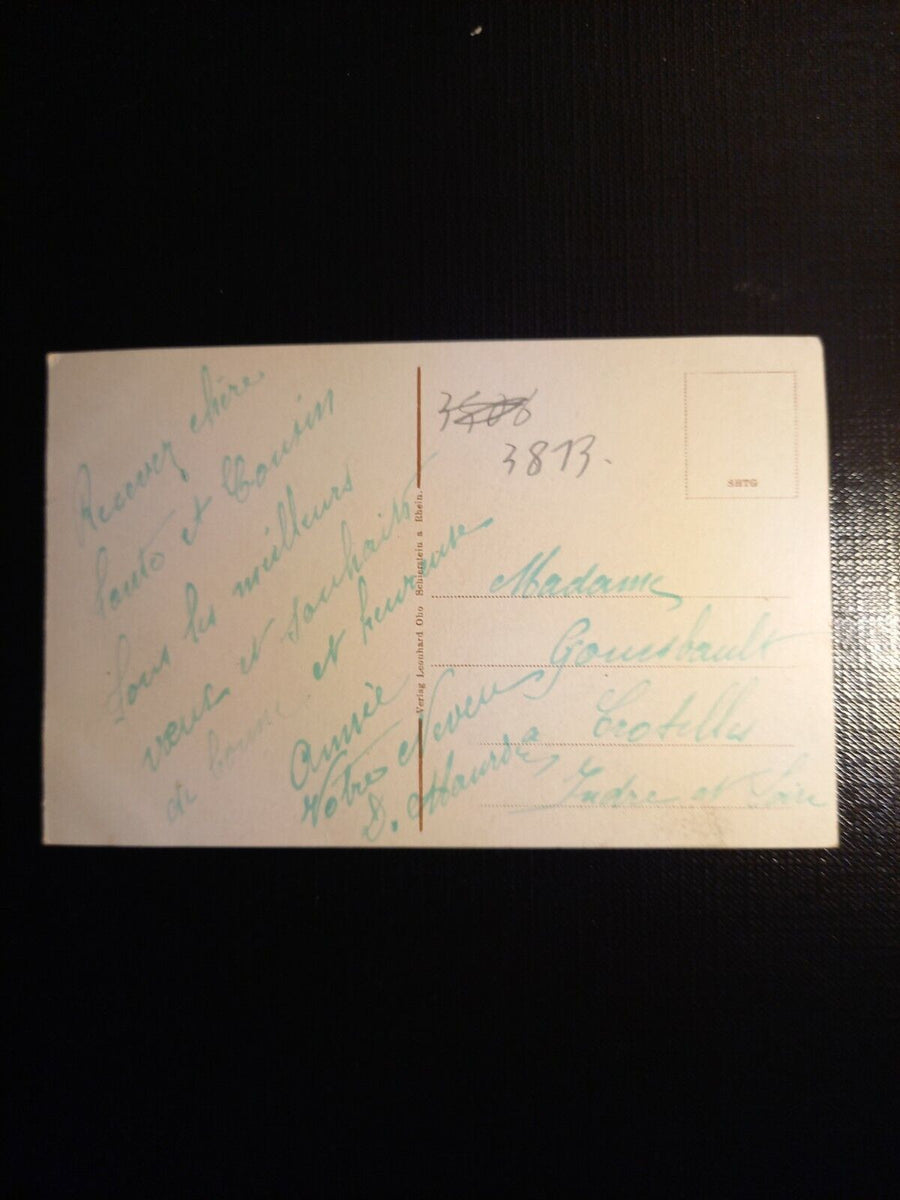 Recevez chère
tante et Cousin
tous les meilleurs
vœux et souhaits
de bonne et heureuse
Année
Votre Neveu
D. Maurice
Verlag Leonhard Oho Schierstein a Rhein.
3813.
SBTG
Madame
Gombault
Crotelles
Indre et Loire